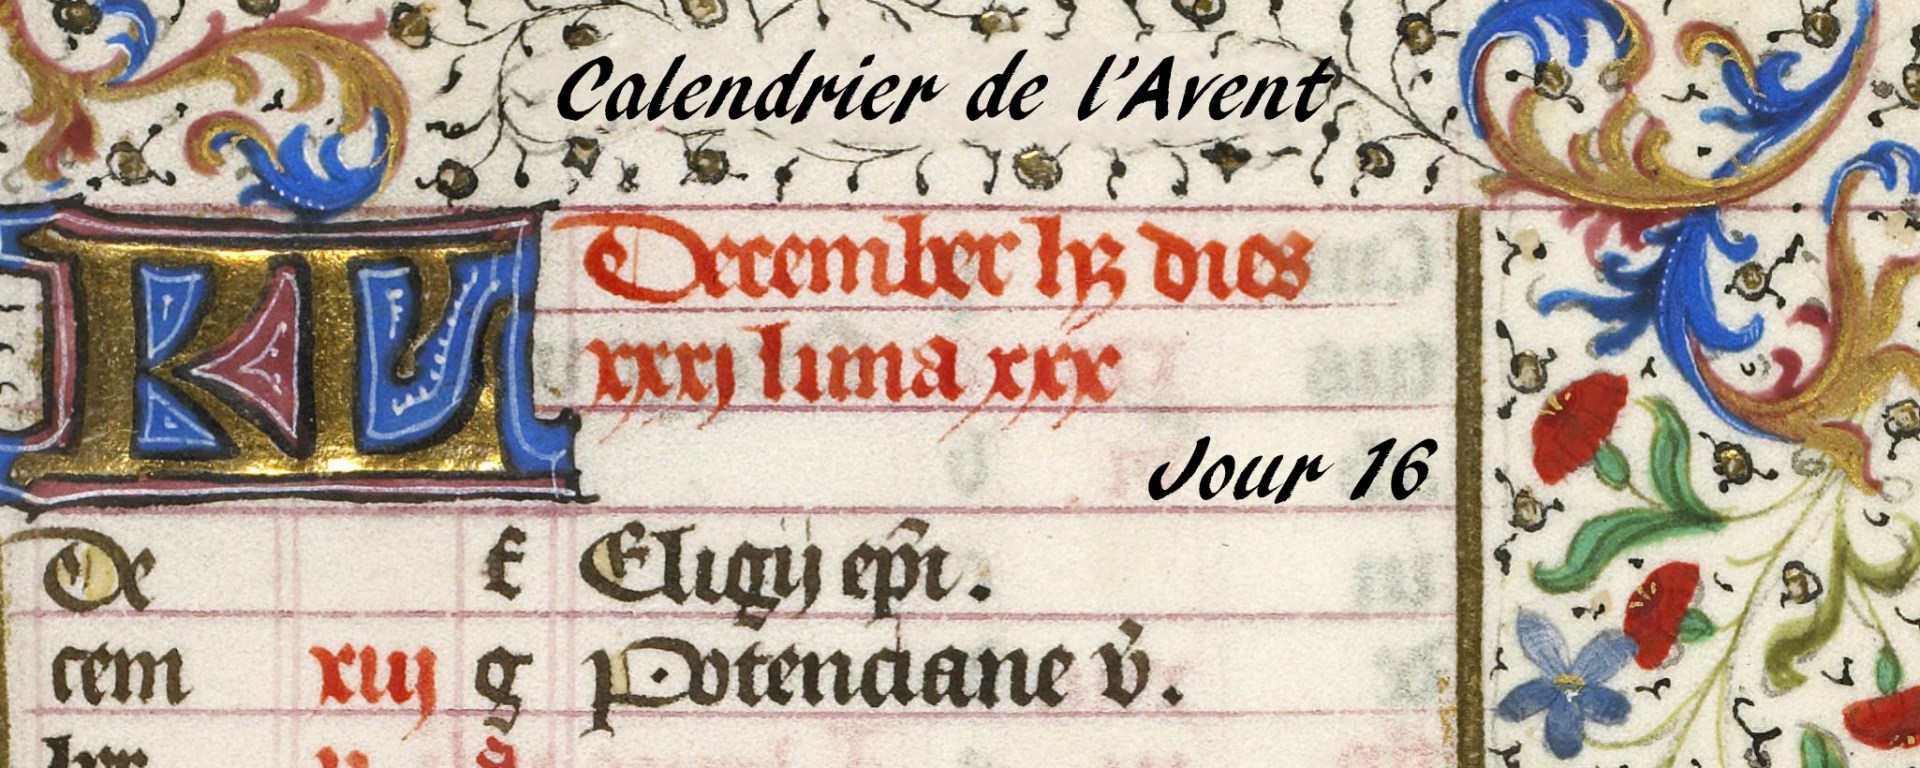 Calendrier de l'Avent
KL December hꝫ dies
xxxj luna xxx
Jour 16
De f Eligij ep̄i.
cem xiij g Potenciane v̄.